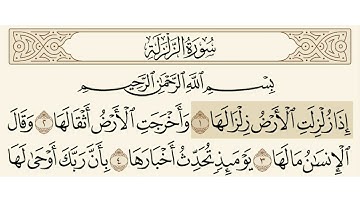 سُورَةُ الزَّلْزَلَةِ
بِسْمِ اللَّهِ الرَّحْمَٰنِ الرَّحِيمِ
إِذَا زُلْزِلَتِ الْأَرْضُ زِلْزَالَهَا ١ وَأَخْرَجَتِ الْأَرْضُ أَثْقَالَهَا ٢ وَقَالَ
الْإِنسَانُ مَا لَهَا ٣ يَوْمَئِذٍ تُحَدِّثُ أَخْبَارَهَا ٤ بِأَنَّ رَبَّكَ أَوْحَىٰ لَهَا